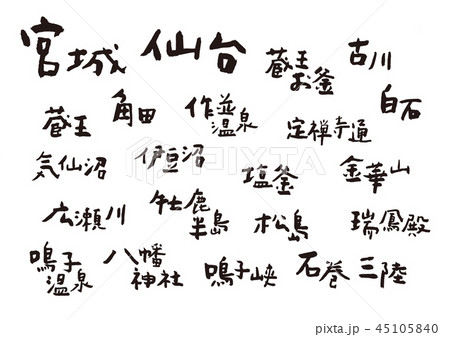 宮城 仙台 蔵王お釜 古川
蔵王 角田 作並温泉 定禅寺通 白石
気仙沼 伊豆沼 塩釜 金華山
広瀬川 牡鹿半島 松島 瑞鳳殿
鳴子温泉 八幡神社 鳴子峡 石巻 三陸
PIXTA
pixta.jp - 45105840